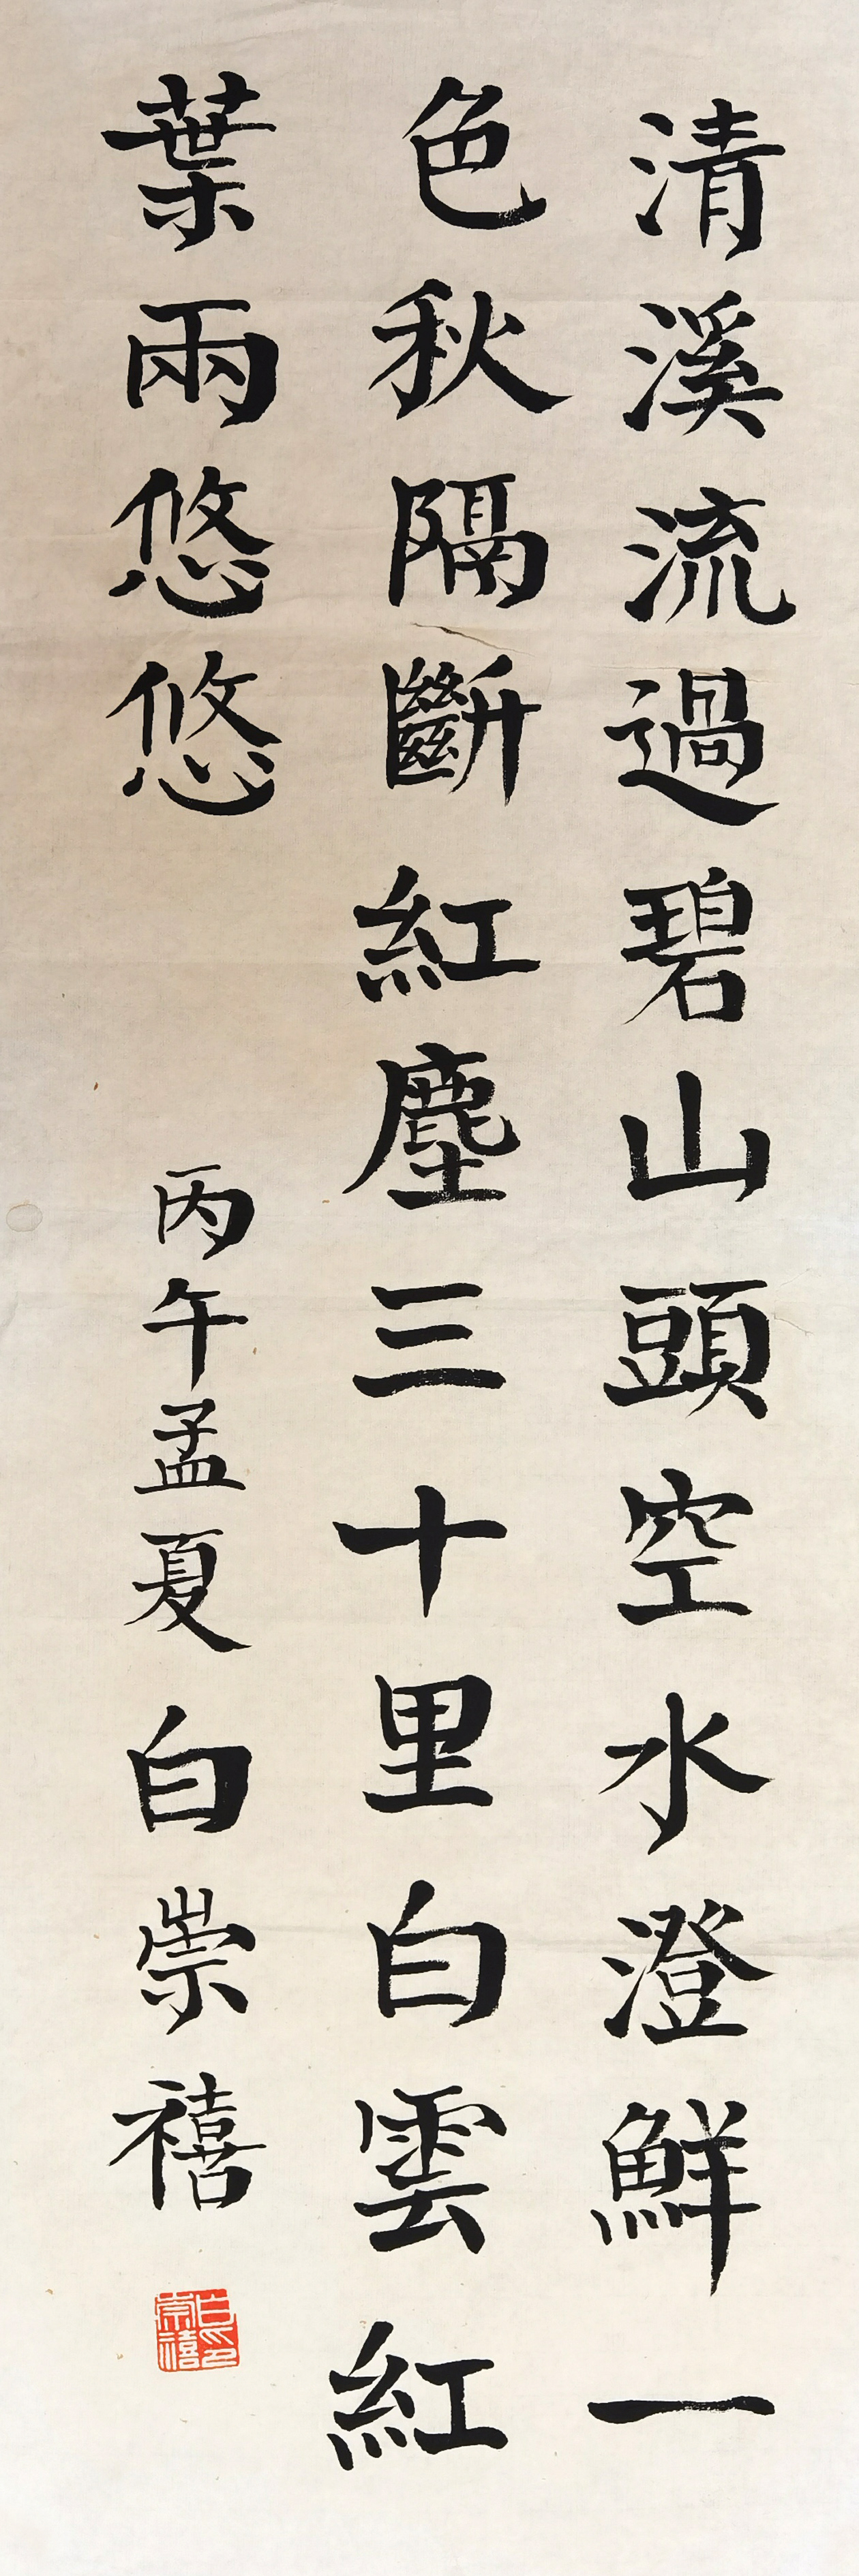 清溪流過碧山頭空水澄鮮一
色秋隔斷紅塵三十里白雲紅
葉兩悠悠
丙午孟夏白崇禧
白崇禧印